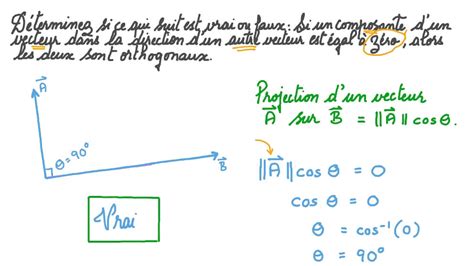 Déterminez si ce qui suit est vrai ou faux : Si un composante d'un
vecteur dans la direction d'un autre vecteur est égal à zéro, alors
les deux sont orthogonaux.
A⃗
θ = 90°
B⃗
Vrai
Projection d'un vecteur
A⃗ sur B⃗ = ||A⃗|| cos θ.
||A⃗|| cos θ = 0
cos θ = 0
θ = cos⁻¹(0)
θ = 90°